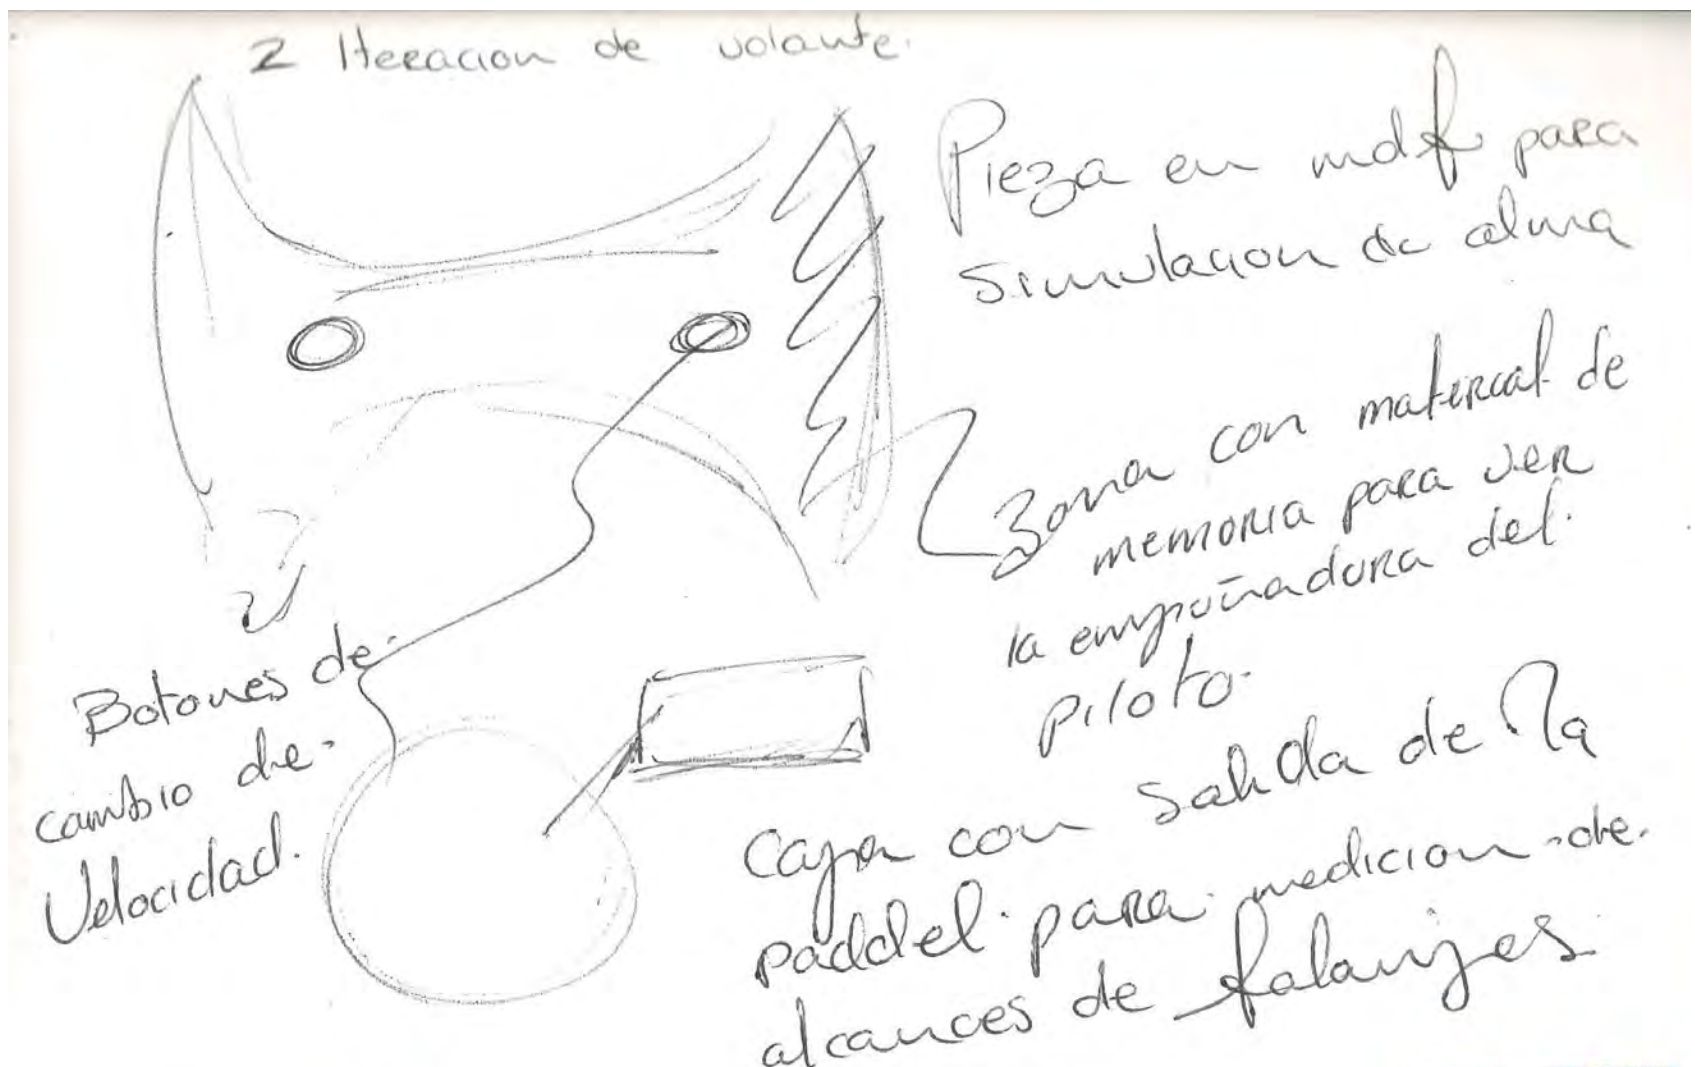 2 Iteracion de volante.
Pieza en mdf para
simulacion de alma
Zona con material de
memoria para ver
la empuñadura del
piloto.
Botones de
cambio de
Velocidad.
Caja con salida de la
paddel para medicion de
alcances de falanjes